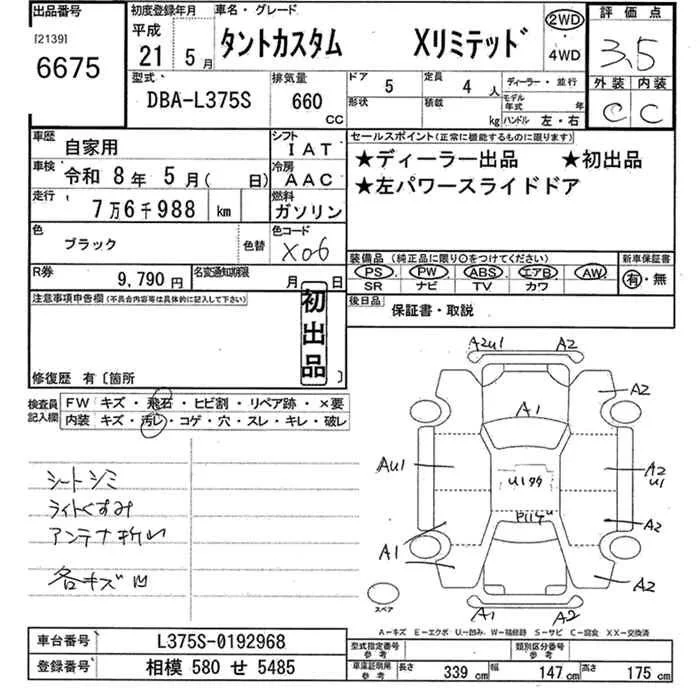 出品番号
[2139]
6675
初度登録年月
平成
21 5月
車名・グレード
タントカスタム Xリミテッド
2WD
・
4WD
評価点
3.5
外装 内装
C C
型式
DBA-L375S
排気量
660
CC
ドア
5
定員
4 人
形状
積載
kg
ディーラー・並行
モデル年式 年
ハンドル 左・右
車歴
自家用
シフト
IAT
車検
令和 8年 5月( 日)
冷房
AAC
走行
7万6千988 km
燃料
ガソリン
色
ブラック
色替
色コード
X06
R券
9,790円
名変通知期限
月 日
セールスポイント(正常に機能するものに限ります)
★ディーラー出品 ★初出品
★左パワースライドドア
装備品(純正品に限り○をつけてください)
PS・PW・ABS・エアB・AW
SR ナビ TV カワ
新車保証書
有・無
後日品
保証書・取説
注意事項申告欄(不具合内容等は具体的に記入して下さい)
初出品
修復歴 有〔箇所
検査員
記入欄
FW キズ・飛石・ヒビ割・リペア跡・×要
内装 キズ・汚レ・コゲ・穴・スレ・キレ・破レ
シートシミ
ライトくすみ
アンテナ折レ
各キズ凹
A2U1
A2
A1
A2
AU1
A2
U1
A2
A1
A2
A1
A2
スペア
A−キズ E−エクボ U−凹み W−補修跡 S−サビ C−腐食 XX−交換済
車台番号
L375S-0192968
登録番号
相模 580 せ 5485
型式指定番号
参考
類別区分番号
参考
車庫証明用
参考
長さ 339 cm
幅 147 cm
高さ 175 cm